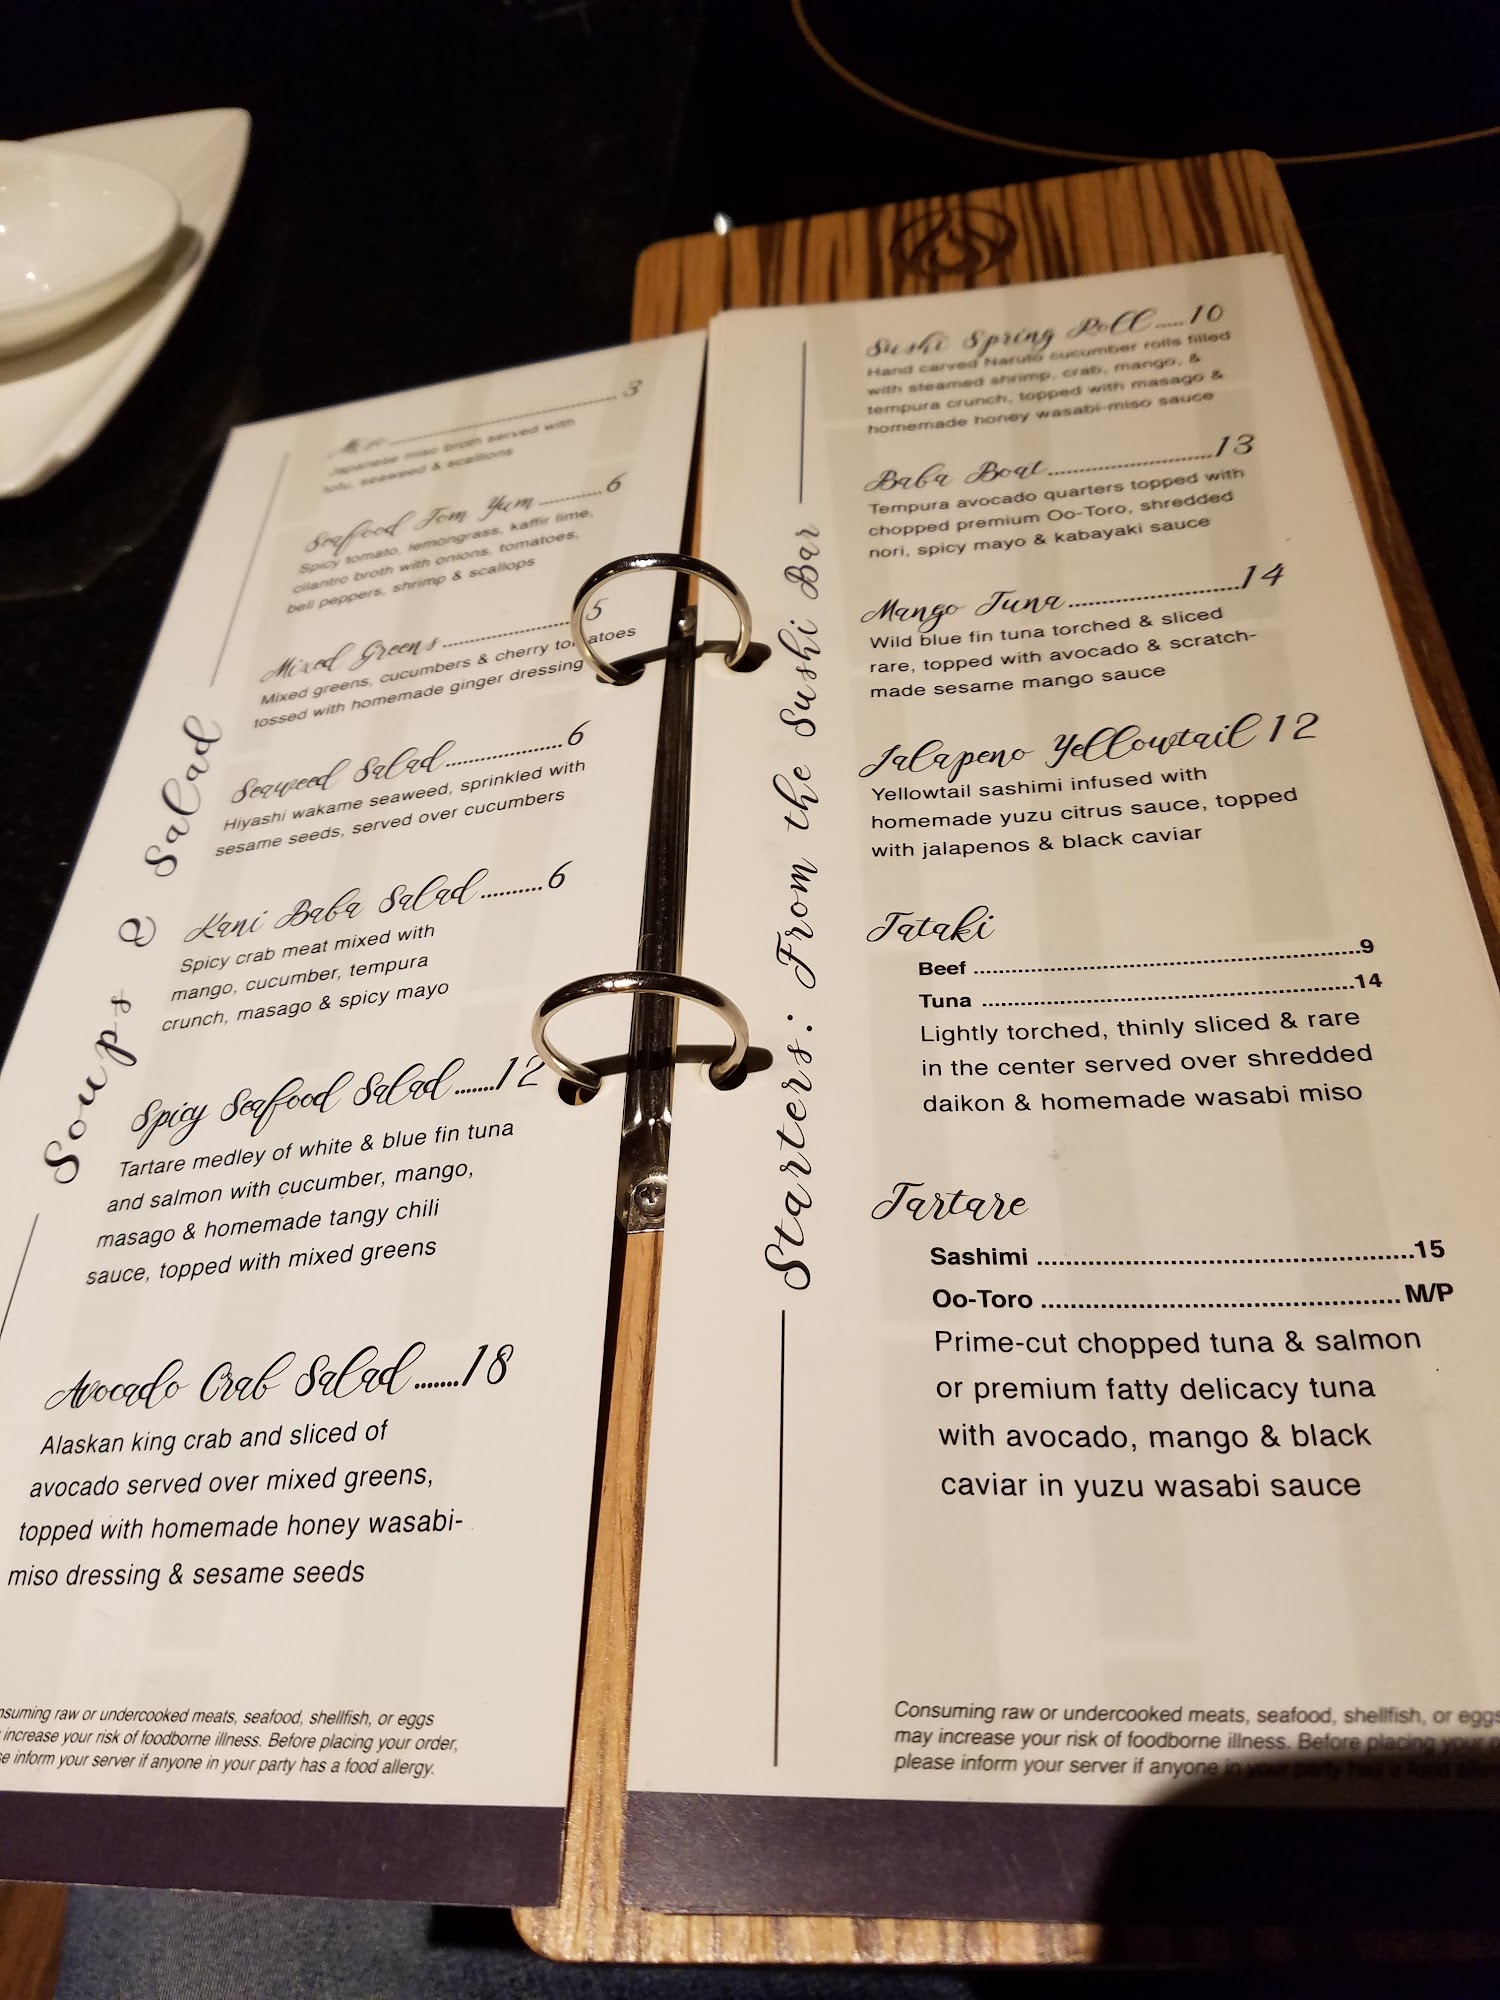 Soups & Salad
Miso ........ 3
Japanese miso broth served with
tofu, seaweed & scallions
Seafood Tom Yum ........ 6
Spicy tomato, lemongrass, kaffir lime,
cilantro broth with onions, tomatoes,
bell peppers, shrimp & scallops
Mixed Greens ........ 5
Mixed greens, cucumbers & cherry tomatoes
tossed with homemade ginger dressing
Seaweed Salad ........ 6
Hiyashi wakame seaweed, sprinkled with
sesame seeds, served over cucumbers
Kani Baba Salad ........ 6
Spicy crab meat mixed with
mango, cucumber, tempura
crunch, masago & spicy mayo
Spicy Seafood Salad ....... 12
Tartare medley of white & blue fin tuna
and salmon with cucumber, mango,
masago & homemade tangy chili
sauce, topped with mixed greens
Avocado Crab Salad ....... 18
Alaskan king crab and sliced of
avocado served over mixed greens,
topped with homemade honey wasabi-
miso dressing & sesame seeds
nsuming raw or undercooked meats, seafood, shellfish, or eggs
increase your risk of foodborne illness. Before placing your order,
se inform your server if anyone in your party has a food allergy.
Starters: From the Sushi Bar
Sushi Spring Roll ..... 10
Hand carved Naruto cucumber rolls filled
with steamed shrimp, crab, mango, &
tempura crunch, topped with masago &
homemade honey wasabi-miso sauce
Baba Boat ........ 13
Tempura avocado quarters topped with
chopped premium Oo-Toro, shredded
nori, spicy mayo & kabayaki sauce
Mango Tuna ........ 14
Wild blue fin tuna torched & sliced
rare, topped with avocado & scratch-
made sesame mango sauce
Jalapeno Yellowtail 12
Yellowtail sashimi infused with
homemade yuzu citrus sauce, topped
with jalapenos & black caviar
Tataki
Beef ........ 9
Tuna ........ 14
Lightly torched, thinly sliced & rare
in the center served over shredded
daikon & homemade wasabi miso
Tartare
Sashimi ........ 15
Oo-Toro ........ M/P
Prime-cut chopped tuna & salmon
or premium fatty delicacy tuna
with avocado, mango & black
caviar in yuzu wasabi sauce
Consuming raw or undercooked meats, seafood, shellfish, or eggs
may increase your risk of foodborne illness. Before placing your
please inform your server if anyone in your party has a food